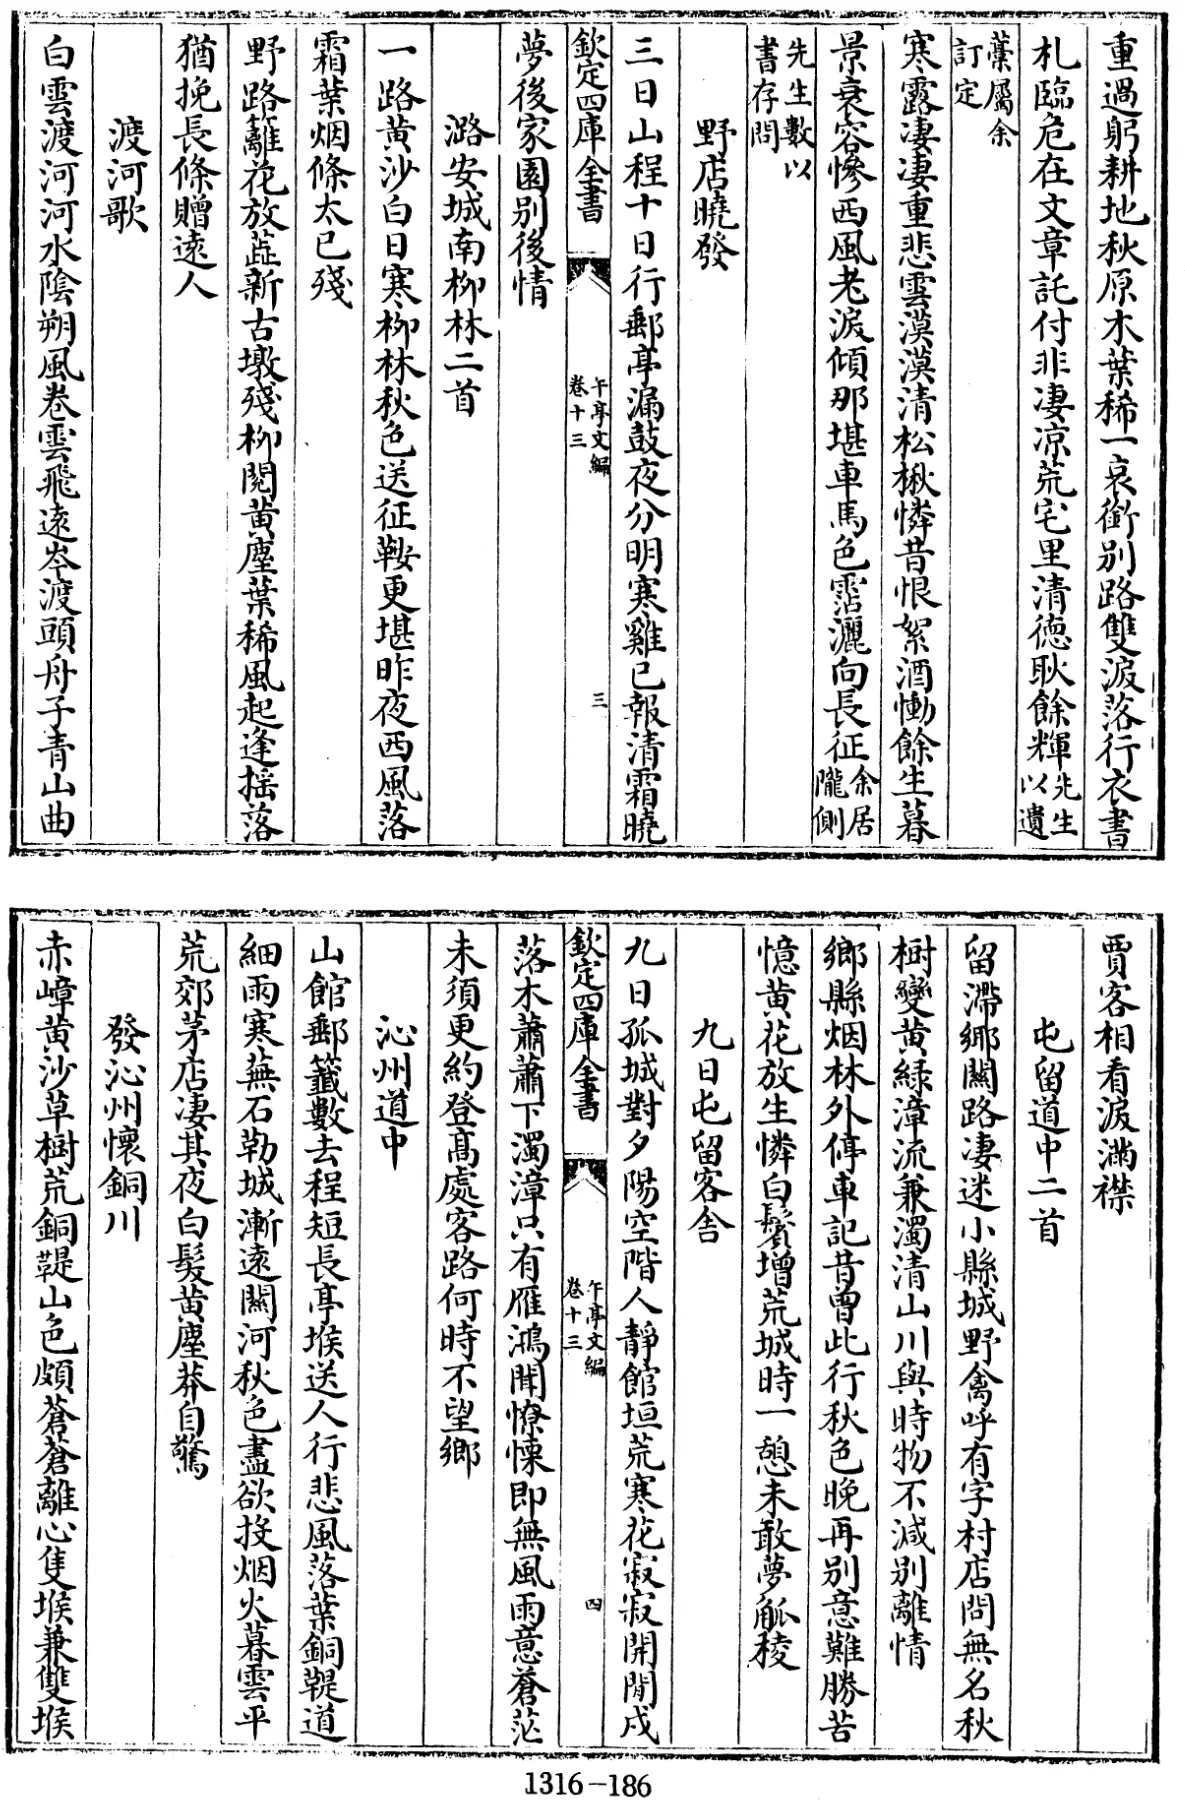 重過躬耕地秋原木葉稀一哀銜别路雙淚落行衣書
札臨危在文章託付非凄凉荒宅里清德耿餘輝先生以遺
藁屬余訂定
寒露凄凄重悲雲漠漠清松楸憐昔恨絮酒慟餘生暮
景衰容慘西風老淚傾那堪車馬色霑灑向長征余居隴側
先生數以書存問
野店曉發
三日山程十日行郵亭漏鼓夜分明寒雞已報清霜曉
欽定四庫全書 午亭文編卷十三 三
夢後家園别後情
潞安城南柳林二首
一路黄沙白日寒柳林秋色送征鞍更堪昨夜西風落
霜葉烟條太已殘
野路籬花放蕋新古墩殘柳閲黄塵葉稀風起逢摇落
猶挽長條贈遠人
渡河歌
白雲渡河河水陰朔風卷雲飛遠岑渡頭舟子青山曲
賈客相看淚滿襟
屯留道中二首
留滯鄉關路凄迷小縣城野禽呼有字村店問無名秋
樹變黄緑漳流兼濁清山川與時物不減别離情
鄉縣烟林外停車記昔曾此行秋色晩再别意難勝苦
憶黄花放生憐白鬢增荒城時一憩未敢夢觚稜
九日屯留客舍
九日孤城對夕陽空階人靜館垣荒寒花寂寂開閒戍
欽定四庫全書 午亭文編卷十三 四
落木蕭蕭下濁漳只有雁鴻聞憭慄即無風雨意蒼茫
未須更約登髙處客路何時不望鄉
沁州道中
山館郵籖數去程短長亭堠送人行悲風落葉銅鞮道
細雨寒蕪石勒城漸遠關河秋色盡欲投烟火暮雲平
荒郊茅店凄其夜白髪黄塵莽自驚
發沁州懷銅川
赤嶂黄沙草樹荒銅鞮山色頗蒼蒼離心隻堠兼雙堠
1316-186